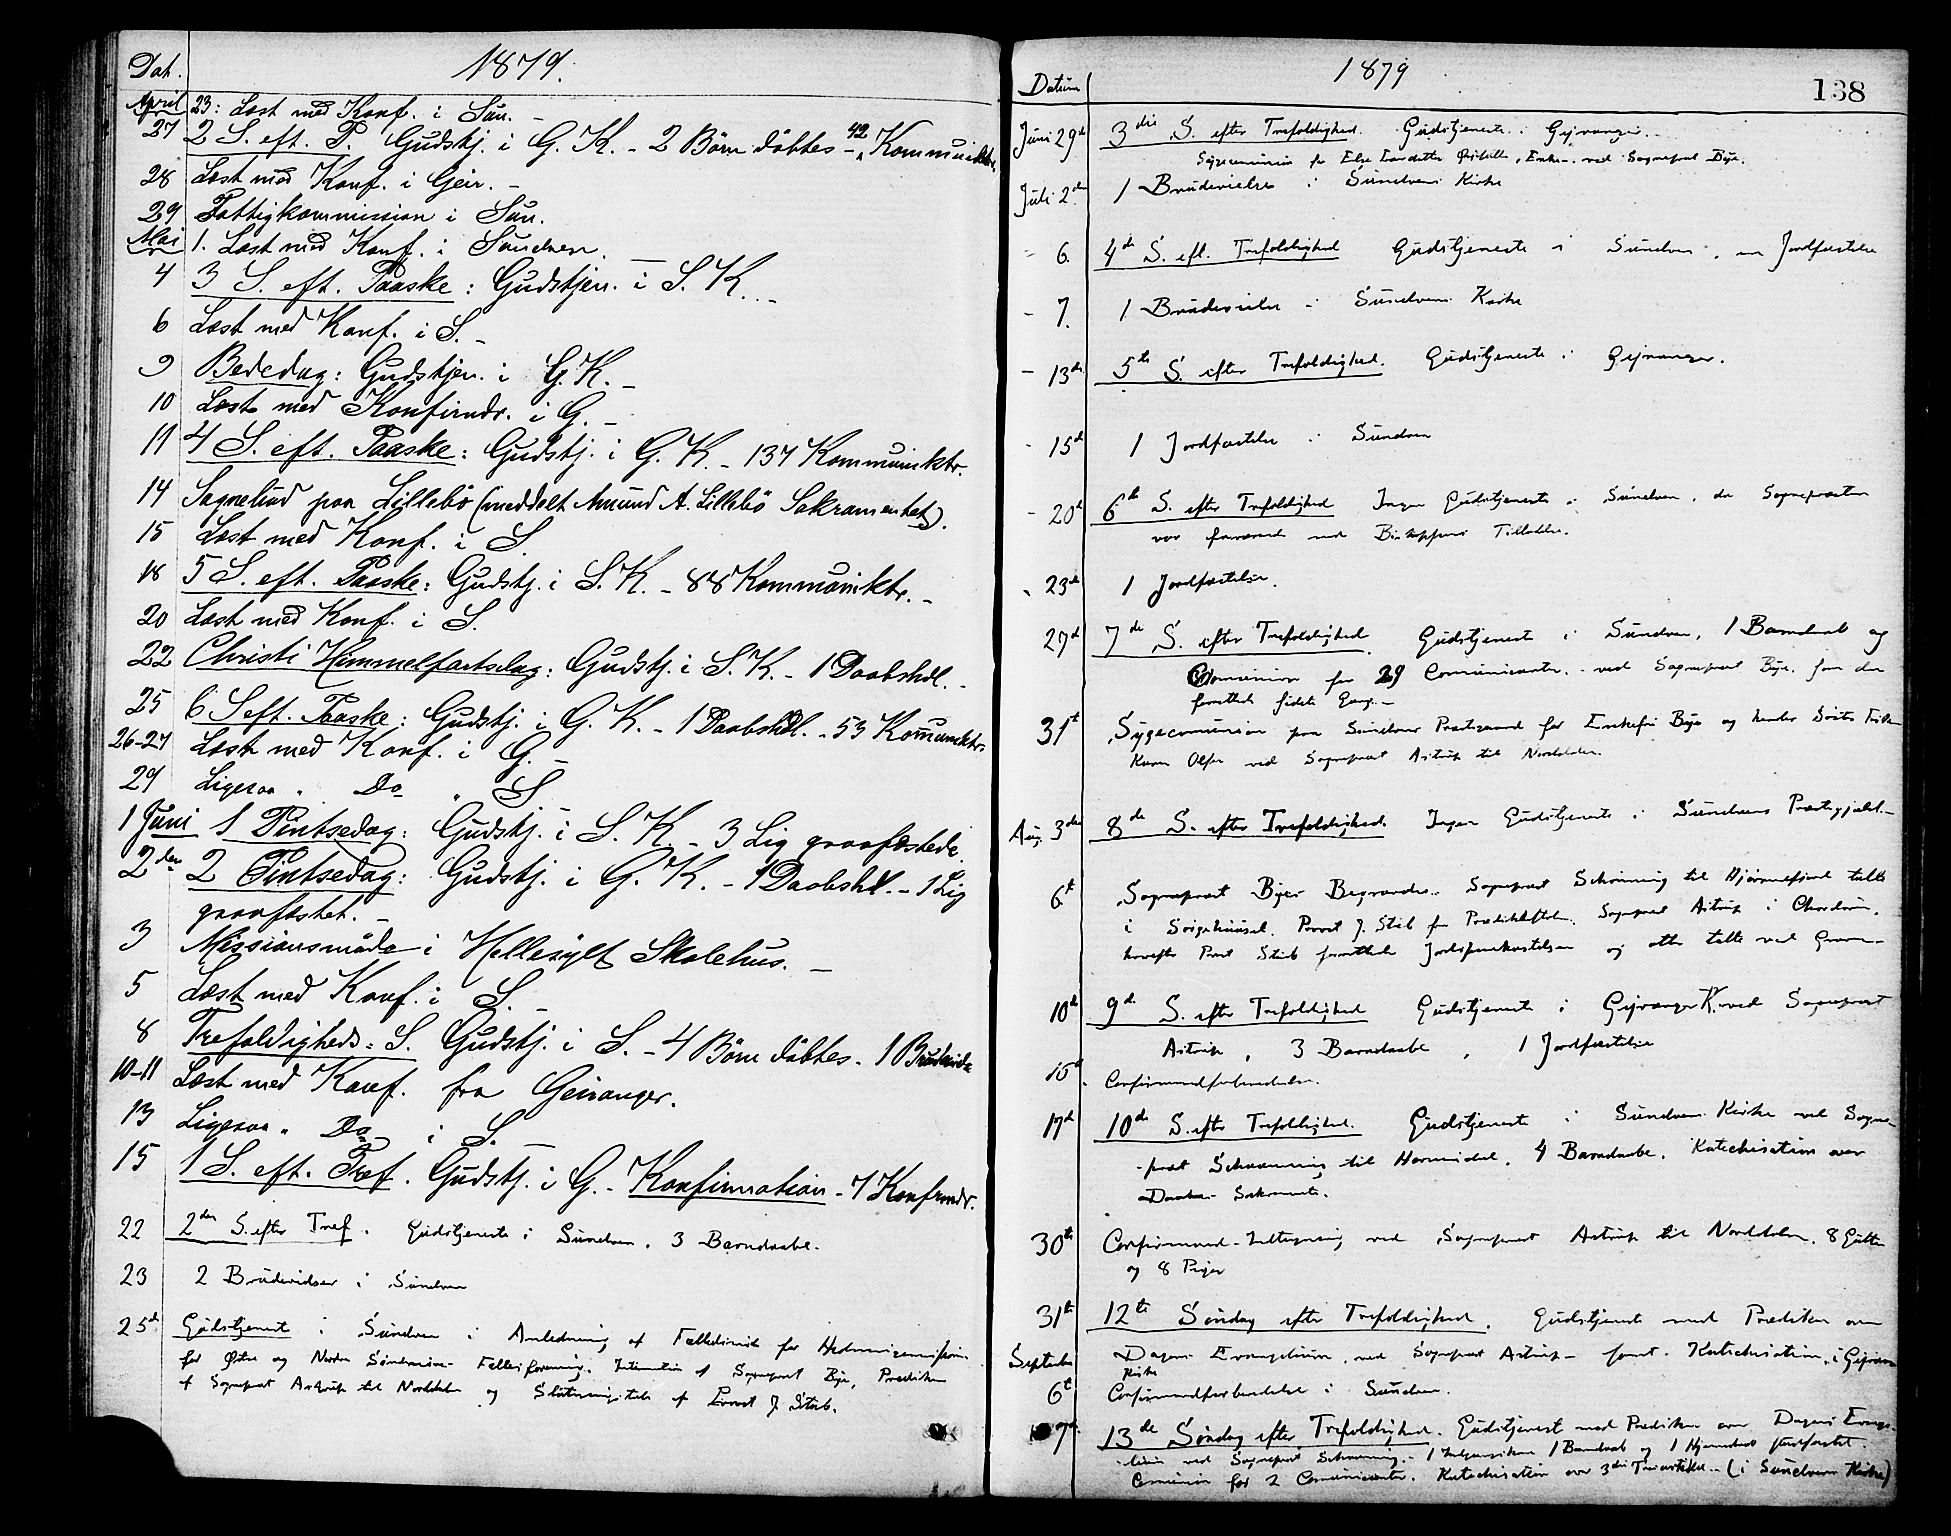 Dat. 1879.
April 23: Læst med Konf. i Sun. –
27 2 S. eft. P. Gudstj. i G. K. – 2 Børn döbtes – 42 Kommuniktr.
28 Læst med Konf. i Geir. –
29 Fattigkommission i Sun.
Mai 1. Læst med Konf. i Sundven.
4 3 S. eft. Paaske: Gudstjen. i S. K. –
6 Læst med Konf. i S. –
9 Bededag: Gudstjen. i G. K. –
10 Læst med Konfirmdr. i G. –
11 4 S. eft. Paaske: Gudstj. i G. K. – 137 Kommuniktr.
14 Sognebud paa Lillebö (meddelt Amund A. Lillebö Sakramentet).
15 Læst med Konf. i S.
18 5 S. eft. Paaske: Gudstj. i S. K. – 88 Kommuniktr. –
20 Læst med Konf. i S.
22 Christi Himmelfartsdag: Gudstj. i S. K. – 1 Daabshdl. –
25 6 S eft. Paaske: Gudstj. i G. K. – 1 Daabshdl. – 53 Komuniktr.
26-27 Læst med Konf. i G. –
29 Ligesaa " Do " S
1 Juni 1 Pintsedag: Gudstj. i S. K. – 3 Lig graafæstede.
2den 2 Pintsedag: Gudstj. i G. K. – 1 Daabshdl. – 1 Lig
graafæstet. –
3 Missionsmöde i Hellesylt Skolehus. –
5 Læst med Konf. i S. –
8 Trefoldigheds: S. Gudstj. i S. – 4 Börn döbtes – 1 Brudevie
10-11 Læst med Konf. fra Geiranger.
13 Ligesaa " Do i S.
15 1 S. eft. Tref. Gudstj. i G. – Konfirmation – 7 Konfirmdr.
22 2den S. efter Tref. Gudstjeneste i Sundven. 3 Barndaabe.
23 2 Brudevielser i Sundven
25d Gudstjenest i Sundven i Anledning af Fællesmöde for Hedningemission
for Østre og Nordre Söndmöre Fællesforening. af Sognepræst Bye, Prædiken
af Sognepræst Astrup til Norddalen og Slutningstale af Provst J. Stub.
Datum 1879 138
Juni 29d 3die S. efter Trefoldighed. Gudstjeneste i Gejranger.
Sygecomunion for Else ved Sognepræst Bye.
Juli 2den 1 Brudevielse i Sundvens Kirke
– 6. 4de S. eft. Trefoldighed Gudstjeneste i Sundven, en Jordfæstelse
– 7. 1 Brudevielse i Sundvens Kirke
– 13de 5te S. efter Trefoldighed. Gudstjeneste i Gejranger.
– 15d 1 Jordfæstelse i Sundven
– 20d 6te S. efter Trefoldighed Ingen Gudstjeneste i Sundven, da Sognepræsten
var fraværende med Biskoppens Tilladelse.
23de 1 Jordfæstelse.
27d 7de S. efter Trefoldighed. Gudstjeneste i Sundven, 1 Barndaab og
Comunion for 29 Comunicanter – ved Sognepræst Bye. som da
forrettede sidste Gang. –
31t Sygecomunion paa Sundvens Præstegaard for Enkefru Bye og hendes
Karen Olsen ved Sognepræst Astrup til Norddalen.
Aug. 3die 8de S. efter Trefoldighed. Ingen Gudstjeneste i Sundvens Præstegjeld. –
6t Sognepræst Byes Begravelse. Sognepræst Schönning til Hjörundfjord talte
i Sörgehuset. Provst J. Stub fra Prædikestolen. Sognepræst Astrup i Chordören,
hvorefter Provst Stub forrettede Jordpaakastelsen og talte ved Graven –
10d 9d S. efter Trefoldighed Gudstjeneste i Gejranger K. ved Sognepræst
Astrup, 3 Barndaabe, 1 Jordfæstelse
15d Confirmandforberedelse.
17d 10de S. efter Trefoldighed. Gudstjeneste i Sundvens Kirke ved Sogne-
præst Schönning til 4 Barndaabe. Katechisation over
Daabens Sakramente.
30te Confirmand- ved Sognepræst Astrup til Norddalen. 8 Gutter
og 8 Piger
31te 12te Söndag efter Trefoldighed. Gudstjeneste med Prædiken over
September Dagens Evangelium, ved Sognepræst Astrup – samt Katechisation, i Gejranger
Kirke
6t Confirmandforberedelse i Sundven.
7de 13de Söndag efter Trefoldighed. Gudstjenest med Prædiken over Dagens Evange-
lium ved Sognepræst Schönning. – 1 1 Barndaab og 1 Hjemdöbt
Comunion for 2 Comunicanter. Katechisation over 3die Troesartikel. – (i Sundvens Kirke)